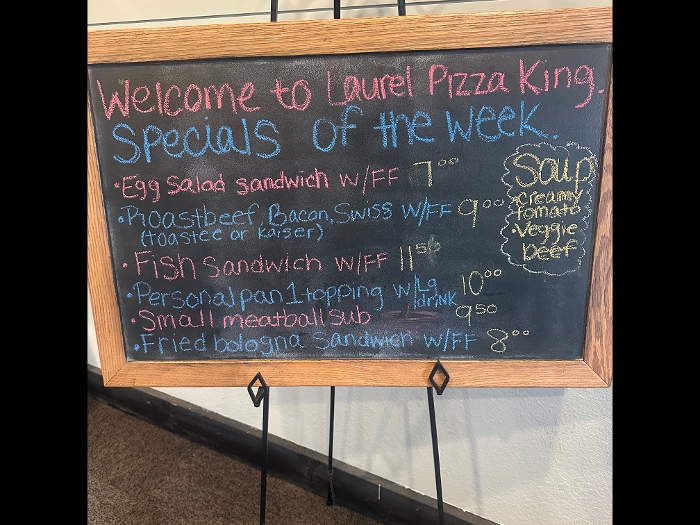 Welcome to Laurel Pizza King.
Specials of the week.
• Egg Salad sandwich w/FF 7⁰⁰
• Roastbeef, Bacon, Swiss w/FF 9⁰⁰
(toastee or Kaiser)
• Fish Sandwich w/FF 11⁵⁰
• Personal pan 1 topping w/Lg drink 10⁰⁰
• Small meatball sub 9⁵⁰
• Fried bologna Sandwich w/FF 8⁰⁰
Soup
• creamy
tomato
• Veggie
beef